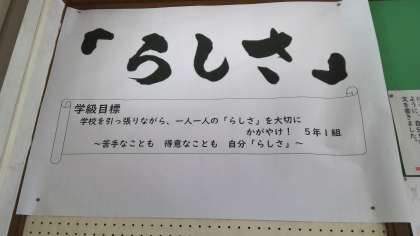 「らしさ」
学級目標
学校を引っ張りながら、一人一人の「らしさ」を大切に
かがやけ! 5年1組
～苦手なことも 得意なことも 自分「らしさ」～